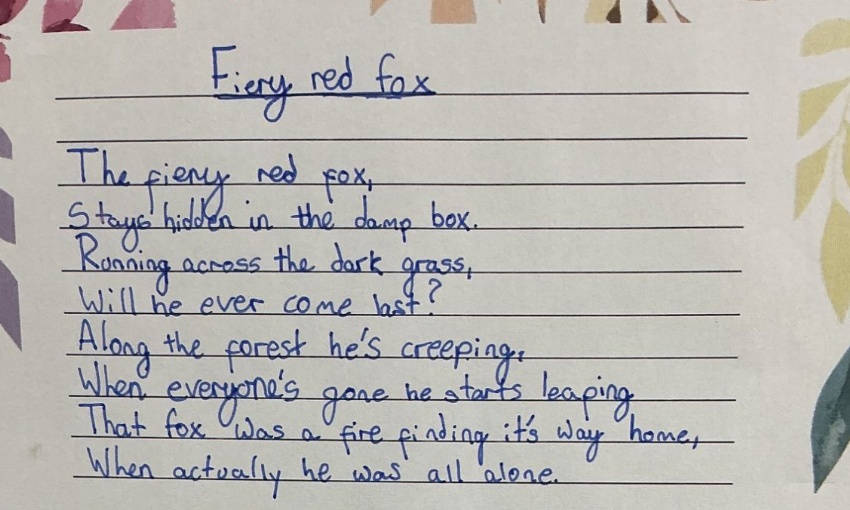 Fiery red fox
The fiery red fox,
Stays hidden in the damp box.
Running across the dark grass,
Will he ever come last?
Along the forest he's creeping,
When everyone's gone he starts leaping
That fox was a fire finding it's way home,
When actually he was all alone.